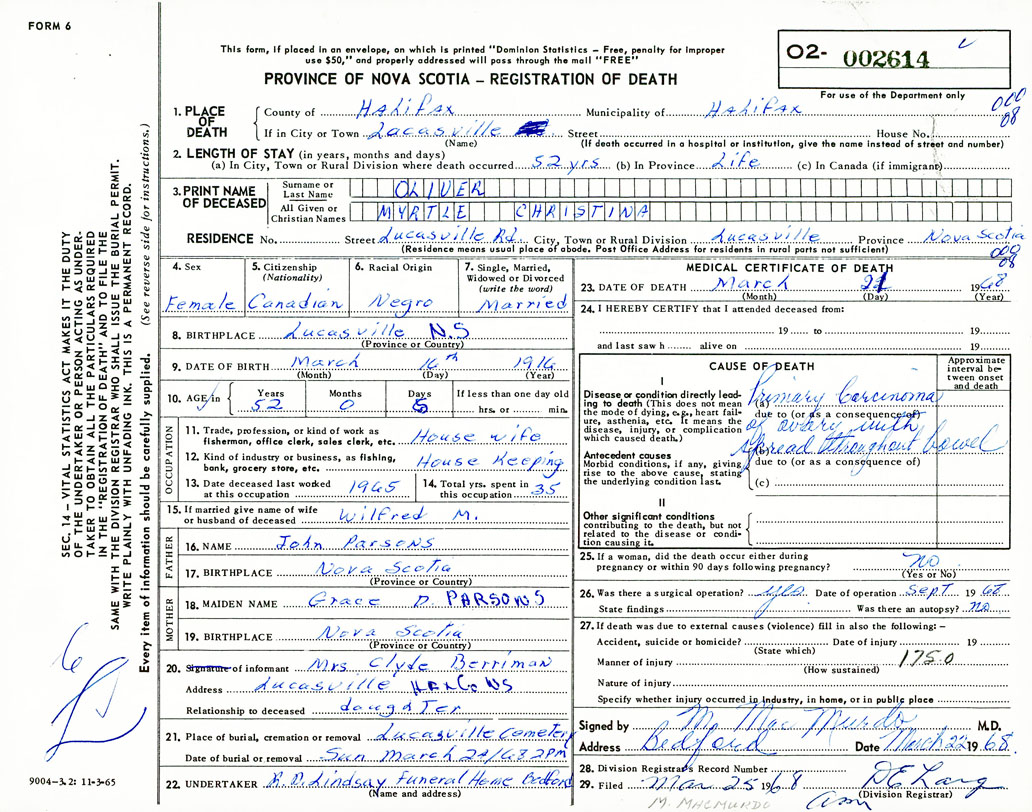 FORM 6
This form, if placed in an envelope, on which is printed "Dominion Statistics – Free, penalty for improper
use $50," and properly addressed will pass through the mail "FREE"
PROVINCE OF NOVA SCOTIA – REGISTRATION OF DEATH
O2- 002614
For use of the Department only
000
08
1. PLACE OF DEATH
County of Halifax Municipality of Halifax
If in City or Town Lucasville Street House No.
(Name) (If death occurred in a hospital or institution, give the name instead of street and number)
2. LENGTH OF STAY (in years, months and days)
(a) In City, Town or Rural Division where death occurred 52 yrs (b) In Province Life (c) In Canada (if immigrant)
3. PRINT NAME OF DECEASED
Surname or Last Name OLIVER
All Given or Christian Names MYRTLE CHRISTINA
RESIDENCE No. Street Lucasville Rd. City, Town or Rural Division Lucasville Province Nova Scotia
(Residence means usual place of abode. Post Office Address for residents in rural parts not sufficient)
000
08
4. Sex
Female
5. Citizenship
(Nationality)
Canadian
6. Racial Origin
Negro
7. Single, Married,
Widowed or Divorced
(write the word)
Married
8. BIRTHPLACE Lucasville N.S
(Province or Country)
9. DATE OF BIRTH March 16th 1916
(Month) (Day) (Year)
10. AGE in
Years Months Days If less than one day old
52 0 5 hrs. or min.
OCCUPATION
11. Trade, profession, or kind of work as
fisherman, office clerk, sales clerk, etc. House wife
12. Kind of industry or business, as fishing,
bank, grocery store, etc. House Keeping
13. Date deceased last worked
at this occupation 1965
14. Total yrs. spent in
this occupation 35
15. If married give name of wife
or husband of deceased Wilfred M.
FATHER
16. NAME John Parsons
17. BIRTHPLACE Nova Scotia
(Province or Country)
MOTHER
18. MAIDEN NAME Grace D. PARSONS
19. BIRTHPLACE Nova Scotia
(Province or Country)
20. Signature of informant Mrs Clyde Berriman
Address Lucasville Hfx Co NS
Relationship to deceased daughter
21. Place of burial, cremation or removal Lucasville Cemetery
Date of burial or removal Sun March 24/68 2PM
22. UNDERTAKER R.D. Lindsay Funeral Home Bedford
(Name and address)
MEDICAL CERTIFICATE OF DEATH
23. DATE OF DEATH March 21 1968
(Month) (Day) (Year)
24. I HEREBY CERTIFY that I attended deceased from:
19 to 19
and last saw h alive on 19
CAUSE OF DEATH
Approximate
interval be-
tween onset
and death
I
Disease or condition directly lead-
ing to death (This does not mean
the mode of dying, e.g., heart fail-
ure, asthenia, etc. It means the
disease, injury, or complication
which caused death.)
(a) Primary Carcinoma
due to (or as a consequence of)
of ovary with
Antecedent causes
Morbid conditions, if any, giving
rise to the above cause, stating
the underlying condition last.
(b) spread throughout bowel
due to (or as a consequence of)
(c)
II
Other significant conditions
contributing to the death, but not
related to the disease or condi-
tion causing it.
25. If a woman, did the death occur either during
pregnancy or within 90 days following pregnancy? no
(Yes or No)
26. Was there a surgical operation? yes Date of operation Sept 1968
State findings Was there an autopsy? no
27. If death was due to external causes (violence) fill in also the following: –
Accident, suicide or homicide? Date of injury 19
(State which)
Manner of injury 175.0
(How sustained)
Nature of injury
Specify whether injury occurred in industry, in home, or in public place
Signed by M. MacMurdo M.D.
Address Bedford Date March 22 1968
28. Division Registrar's Record Number
29. Filed Mar 25 1968 D E Lang
(Division Registrar)
M. MACMURDO
SEC. 14 – VITAL STATISTICS ACT MAKES IT THE DUTY
OF THE UNDERTAKER OR PERSON ACTING AS UNDER-
TAKER TO OBTAIN ALL THE PARTICULARS REQUIRED
IN THE "REGISTRATION OF DEATH" AND TO FILE THE
SAME WITH THE DIVISION REGISTRAR WHO SHALL ISSUE THE BURIAL PERMIT.
WRITE PLAINLY WITH UNFADING INK. THIS IS A PERMANENT RECORD.
Every item of information should be carefully supplied. (See reverse side for instructions.)
9004–3.2: 11-3-65